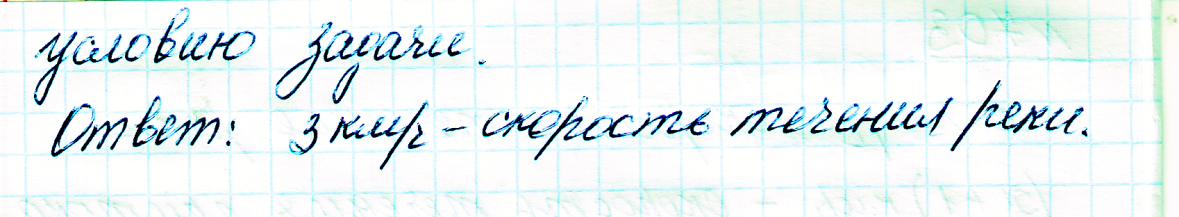 условию задачи.
Ответ: 3 км/ч – скорость течения реки.